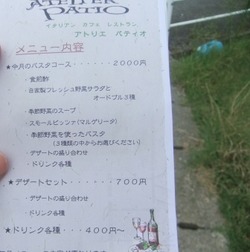 ATELIER
PATIO
イタリアン カフェ レストラン
アトリエ パティオ
メニュー内容
★今月のパスタコース ・・・・ 2000円
・食前酢
・自家製フレッシュ野菜サラダと
オードブル3種
・季節野菜のスープ
・スモールピッツァ(マルゲリータ)
・季節野菜を使ったパスタ
(3種類の中からお選びください)
・デザートの盛り合わせ
・ドリンク各種
★デザートセット ・・・・・ 700円
・デザートの盛り合わせ
・ドリンク各種
★ドリンク各種 ・・・・ 400円〜